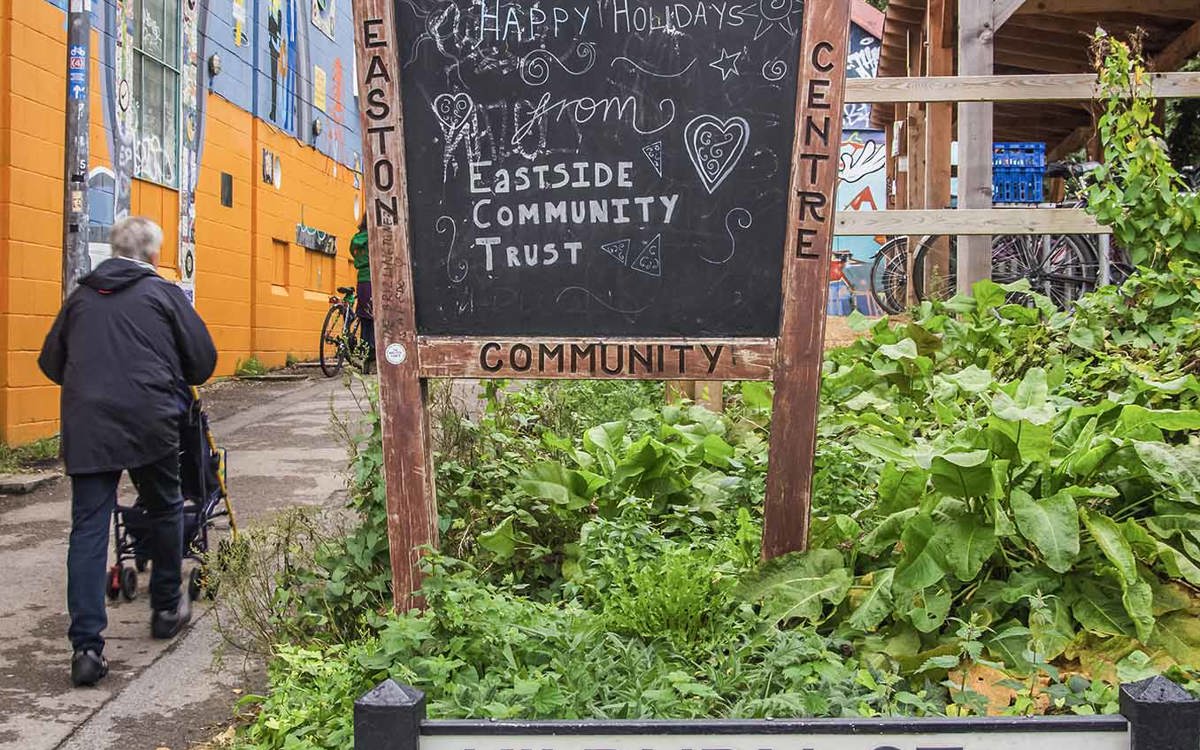 HAPPY HOLIDAYS
from
EASTSIDE
COMMUNITY
TRUST
EASTON
COMMUNITY
CENTRE